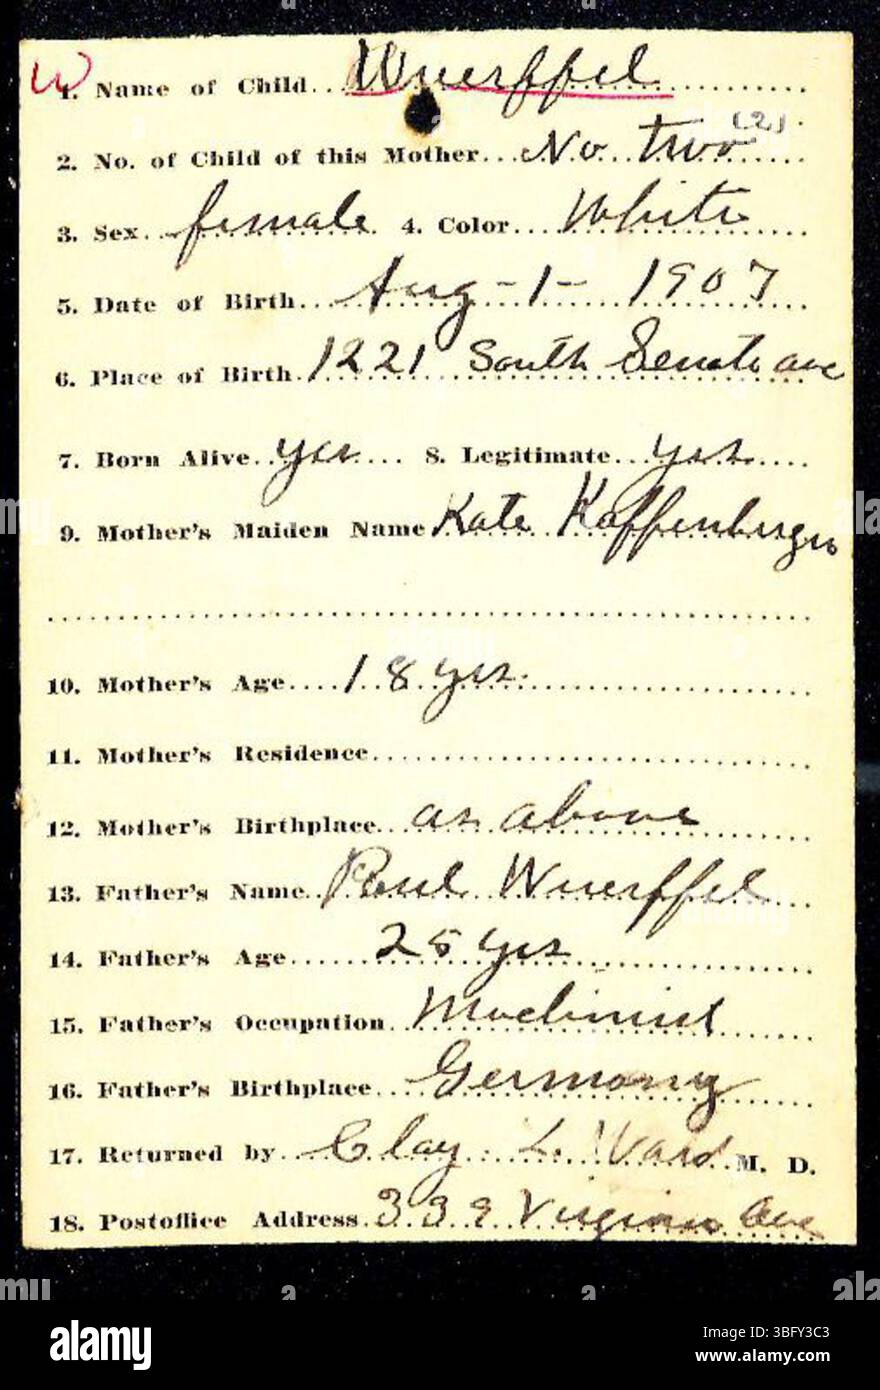 W
1. Name of Child...Wuerffel
(2)
2. No. of Child of this Mother...No two
3. Sex..female 4. Color...White
5. Date of Birth...Aug-1-1907
6. Place of Birth.1221 South Senate ave
7. Born Alive..yes.... 8. Legitimate...yes....
9. Mother's Maiden Name Kate Kaffenberger
10. Mother's Age....18 yrs.
11. Mother's Residence
12. Mother's Birthplace...as above
13. Father's Name..Paul Wuerffel
14. Father's Age......25 yrs
15. Father's Occupation..Machinist
16. Father's Birthplace....Germany
17. Returned by...Clay L. Ward M. D.
18. Postoffice Address.339 Virginia Ave
alamy
a
alamy
Image ID: 3BFY3C3
www.alamy.com